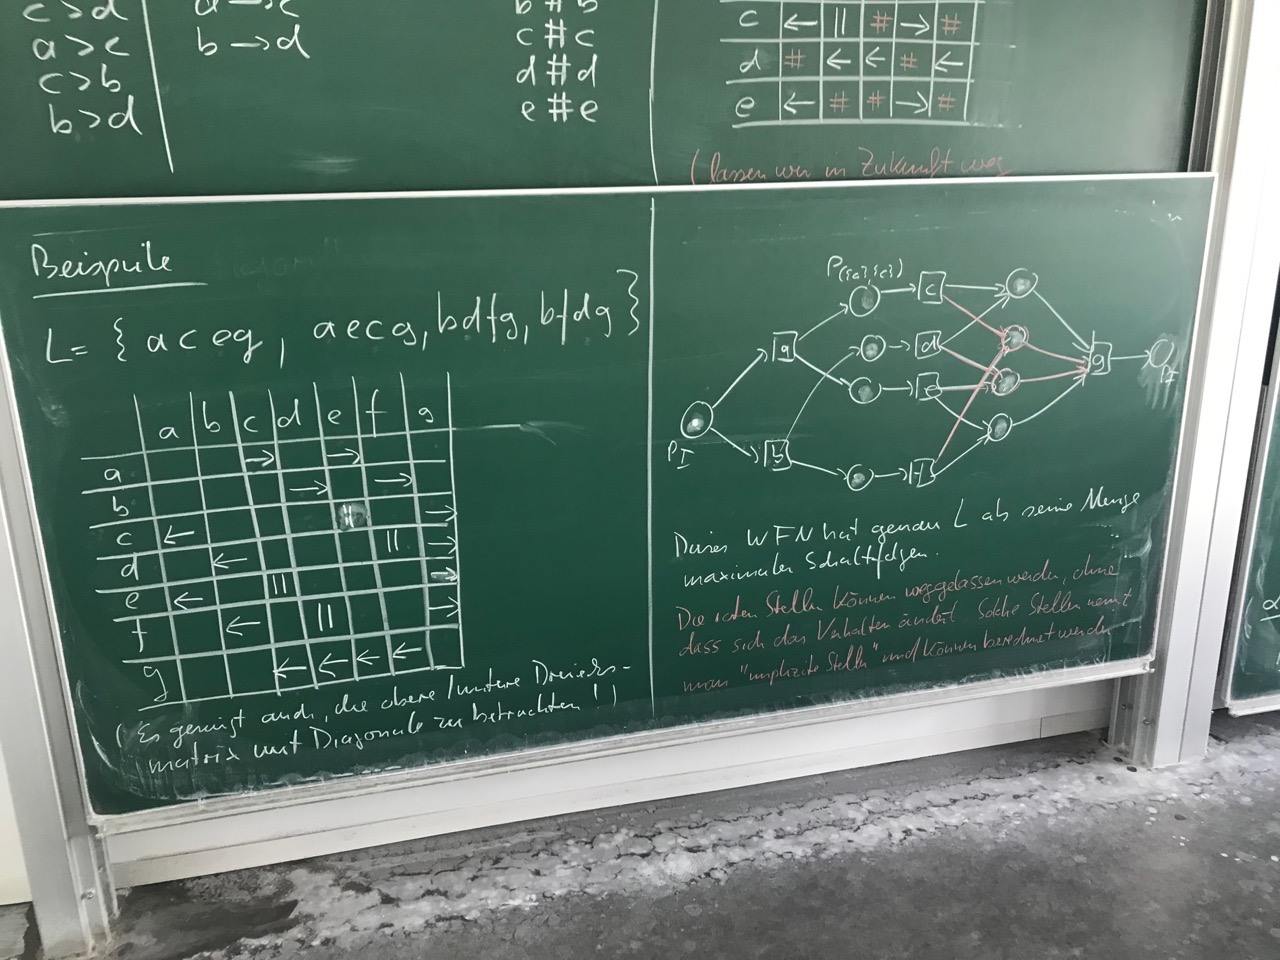 c > d
a > c
c > b
b > d
a → c
b → d
b # b
c # c
d # d
e # e
c ← || # → #
d # ← ← # ←
e ← # # → #
(lassen wir in Zukunft weg
Beispiele
L = { aceg, aecg, bdfg, bfdg }
a b c d e f g
a → →
b → →
c ← || →
d ← || →
e ← || →
f ← || →
g ← ← ← ←
(Es genügt auch, die obere/untere Dreiecks-
matrix mit Diagonale zu betrachten!)
P({a},{c})
c
a d g
e
P_I b f P_I
Dieses WFN hat genau L als seine Menge
maximaler Schaltfolgen.
Die roten Stellen können weggelassen werden, ohne
dass sich das Verhalten ändert. Solche Stellen nennt
man "implizite Stellen" und können berechnet werden